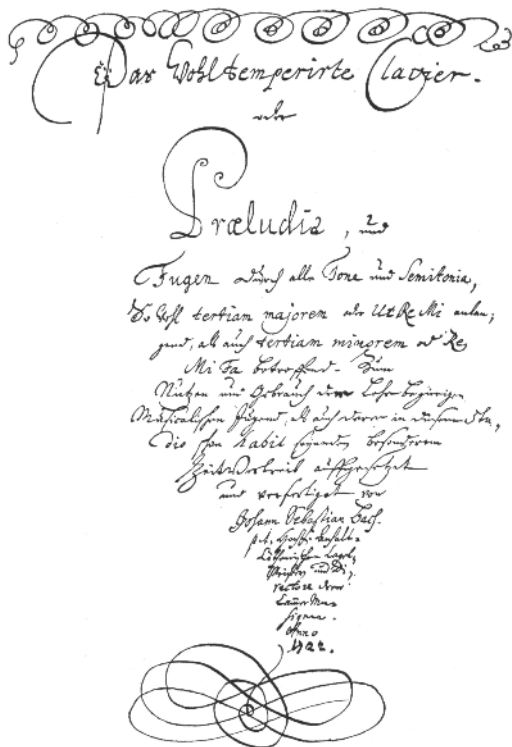 Das Wohltemperirte Clavier.
oder
Præludia, und
Fugen durch alle Tone und Semitonia,
So wohl tertiam majorem oder Ut Re Mi anlan,
gend, als auch tertiam minorem oder Re
Mi Fa betreffend. Zum
Nutzen und Gebrauch der Lehr-begierigen
Musicalischen Jugend, als auch derer in diesem stu,
dio schon habil seyenden besonderem
ZeitVertreib auffgesetzet
und verfertiget von
Johann Sebastian Bach.
p. t. HochF. Anhalt-
Cöthenischen Capel,
Meistern und Di,
rectore derer
Cam̃er Mu-
siquen.
Anno
1722.